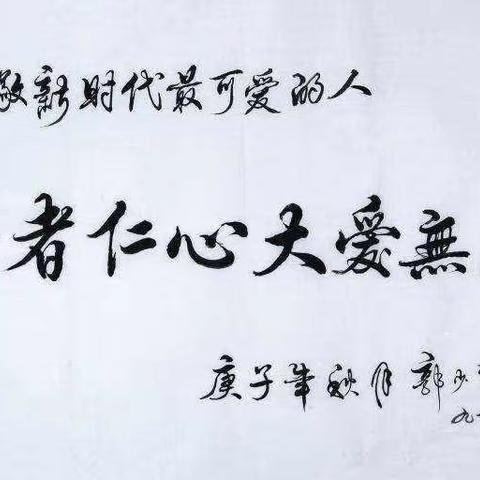 敬新时代最可爱的人
者仁心大爱無
庚子年秋月 郭少
九